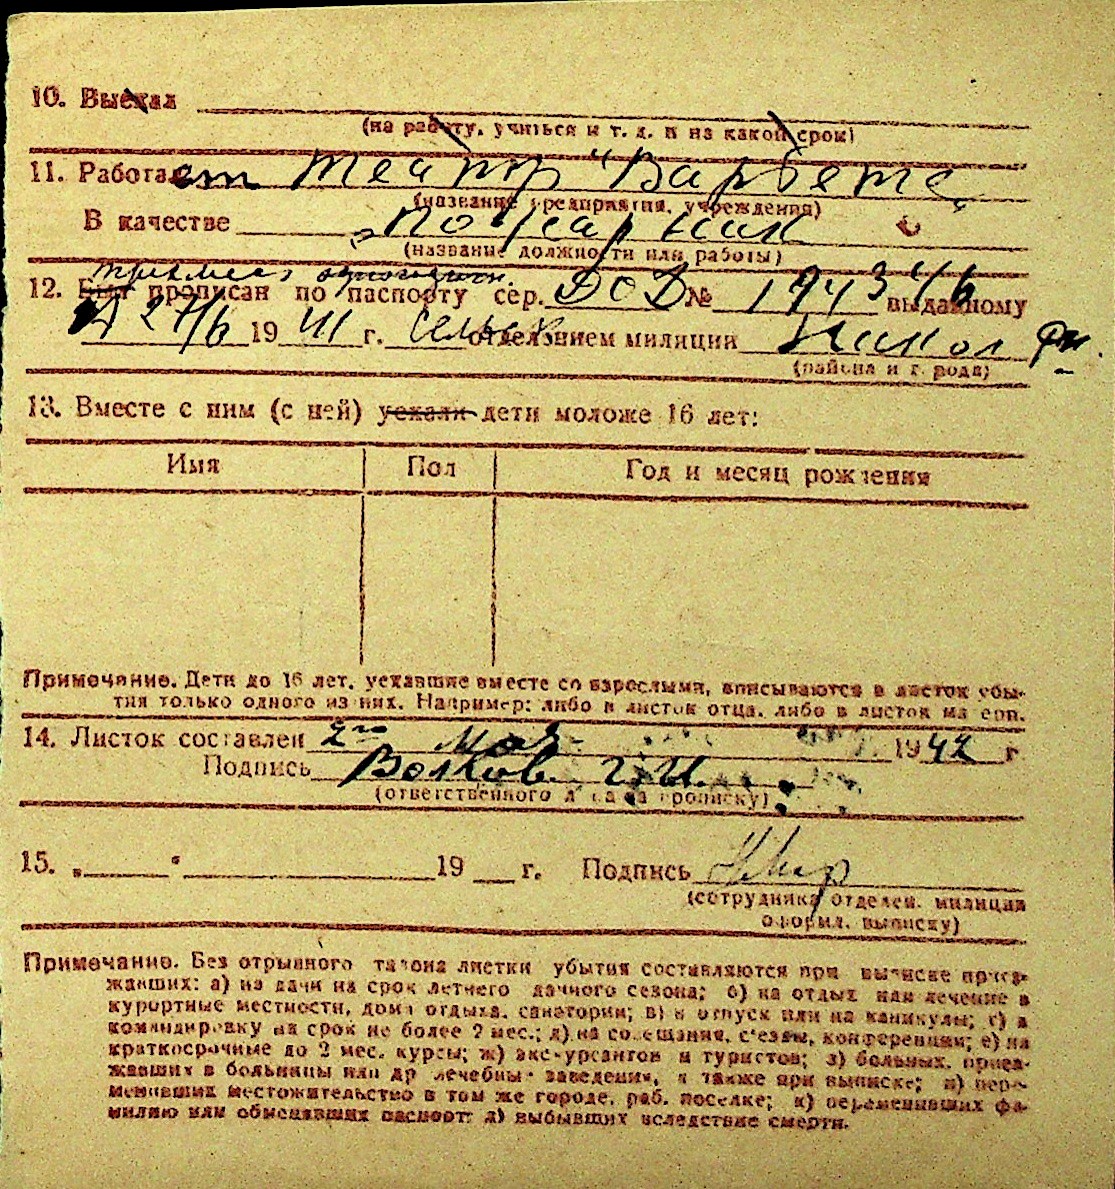 10. Выехал
(на работу, учиться и т. д. и на какой срок)
11. Работает театр "Варьете
(название предприятия, учреждения)
В качестве пожарник
(название должности или работы)
12. Был прописан по паспорту сер. ДОД № 194346 выданному
27/6 1941 г. сельск отделением милиции Никол
(района и города)
13. Вместе с ним (с ней) уехали дети моложе 16 лет:
Имя Пол Год и месяц рождения
Примечание. Дети до 16 лет, уехавшие вместе со взрослыми, вписываются в листок убы-
тия только одного из них. Например: либо в листок отца, либо в листок матери.
14. Листок составлен 2го мая 1942 г
Подпись Волков Г.И.
(ответственного лица за прописку)
15. „ " 19 г. Подпись
(сотрудника отделен. милиции
оформл. выписку)
Примечание. Без отрывного талона листки убытия составляются при выписке приез-
жавших: а) на дачи на срок летнего дачного сезона; б) на отдых или лечение в
курортные местности, дома отдыха, санатории; в) в отпуск или на каникулы; г) в
командировку на срок не более 2 мес.; д) на совещания, съезды, конференции; е) на
краткосрочные до 2 мес. курсы; ж) экскурсантов и туристов; з) больных, приез-
жавших в больницы или др лечебные заведения, а также при выписке; и) пере-
менивших местожительство в том же городе, раб. поселке; к) переменивших фа-
милию или обменявших паспорт; л) выбывших вследствие смерти.